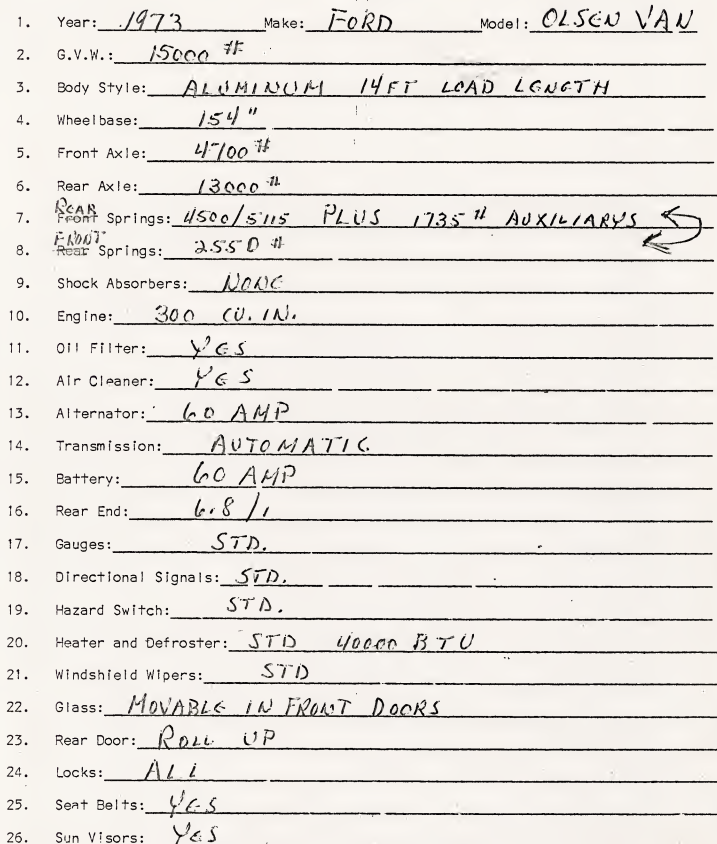 1. Year: 1973 Make: FORD Model: OLSEN VAN
2. G.V.W.: 15000 #
3. Body Style: ALUMINUM 14FT LOAD LENGTH
4. Wheelbase: 154"
5. Front Axle: 4700 #
6. Rear Axle: 13000 #
7. REAR Front Springs: 4500/5115 PLUS 1735 # AUXILIARYS
8. FRONT Rear Springs: 2550 #
9. Shock Absorbers: NONE
10. Engine: 300 CU. IN.
11. Oil Filter: YES
12. Air Cleaner: YES
13. Alternator: 60 AMP
14. Transmission: AUTOMATIC
15. Battery: 60 AMP
16. Rear End: 6.8/1
17. Gauges: STD.
18. Directional Signals: STD.
19. Hazard Switch: STD.
20. Heater and Defroster: STD 40000 BTU
21. Windshield Wipers: STD
22. Glass: MOVABLE IN FRONT DOORS
23. Rear Door: ROLL UP
24. Locks: ALL
25. Seat Belts: YES
26. Sun Visors: YES